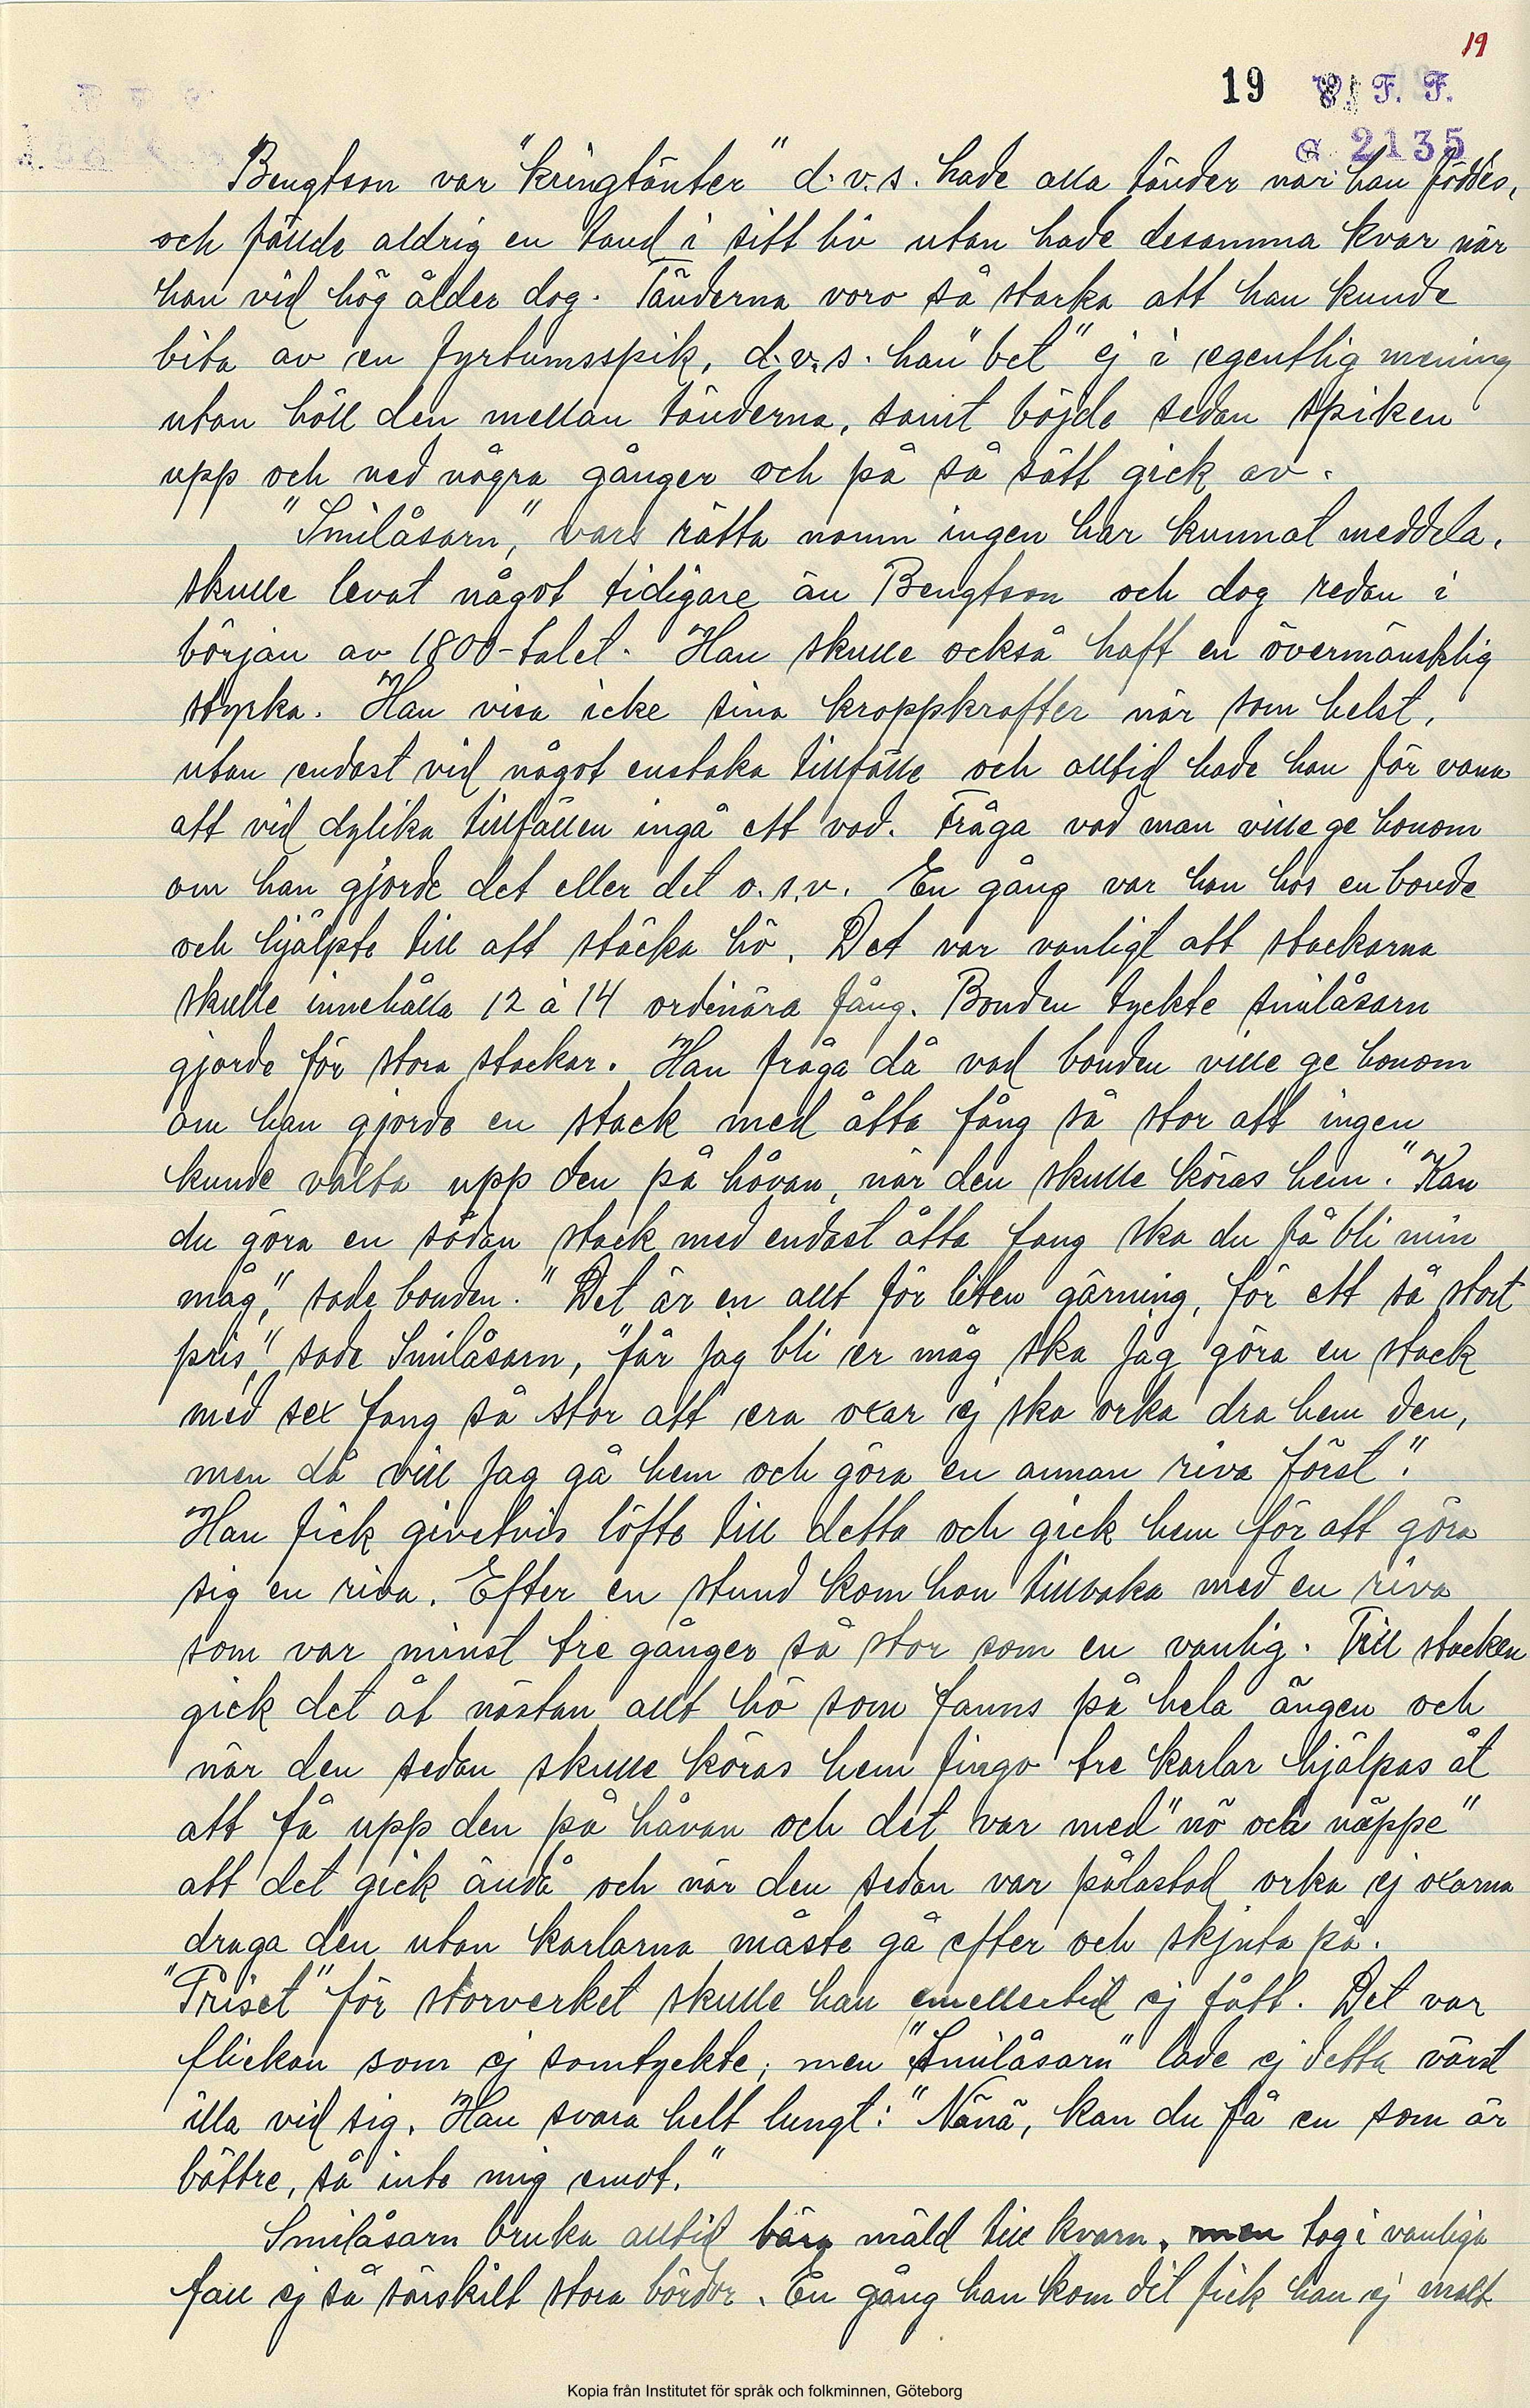 19
19 V. F. F.
G 2135
Bengtson var "kringtänter" d.v.s. hade alla tänder när han föddes,
och fällde aldrig en tand i sitt liv utan hade desamma kvar när
han vid hög ålder dog. Tänderna voro så starka att han kunde
bita av en fyrtumsspik, d.v.s. han "bet" ej i egentlig mening
utan höll den mellan tänderna, samt böjde sedan spiken
upp och ned några gånger och på så sätt gick av.
"Smilåsarn", vars rätta namn ingen har kunnat meddela,
skulle levat något tidigare än Bengtson och dog redan i
början av 1800-talet. Han skulle också haft en övermänsklig
styrka. Han visa icke sina kroppkrafter när som helst,
utan endast vid något enstaka tillfälle och alltid hade han för vana
att vid dylika tillfällen ingå ett vad. Fråga vad man ville ge honom
om han gjorde det eller det o.s.v. En gång var han hos en bonde
och hjälpte till att stäcka hö. Det var vanligt att stackarna
skulle innehålla 12 à 14 ordinära fång. Bonden tyckte smilåsarn
gjorde för stora stackar. Han fråga då vad bonden ville ge honom
om han gjorde en stack med åtta fång så stor att ingen
kunde välta upp den på håvan, när den skulle köras hem. "Kan
du göra en sådan stack med endast åtta fang ska du få bli min
måg", sade bonden. "Det är en allt för liten gärning, för ett så stort
pris", sade Smilåsarn, "får jag bli er måg ska jag göra en stack
med sex fang så stor att era oxar ej ska orka dra hem den,
men då vill jag gå hem och göra en annan riva först".
Han fick givetvis löfte till detta och gick hem för att göra
sig en riva. Efter en stund kom han tillbaka med en riva
som var minst tre gånger så stor som en vanlig. Till stacken
gick det åt nästan allt hö som fanns på hela ängen och
när den sedan skulle köras hem fingo tre karlar hjälpas åt
att få upp den på håvan och det var med "nö och näppe"
att det gick ändå och när den sedan var pålastad orka ej oxarna
draga den utan karlarna måste gå efter och skjuta på.
"Priset" för storverket skulle han emellertid ej fått. Det var
flickan som ej samtyckte, men "Smilåsarn" lade ej detta värst
illa vid sig. Han svara helt lungt: "Nänä, kan du få en som är
bättre, så inte mig emot."
Smilåsarn bruka alltid bära mäld till kvarn, men tog i vanliga
fall ej så särskilt stora bördor. En gång han kom dit fick han ej malt
Kopia från Institutet för språk och folkminnen, Göteborg